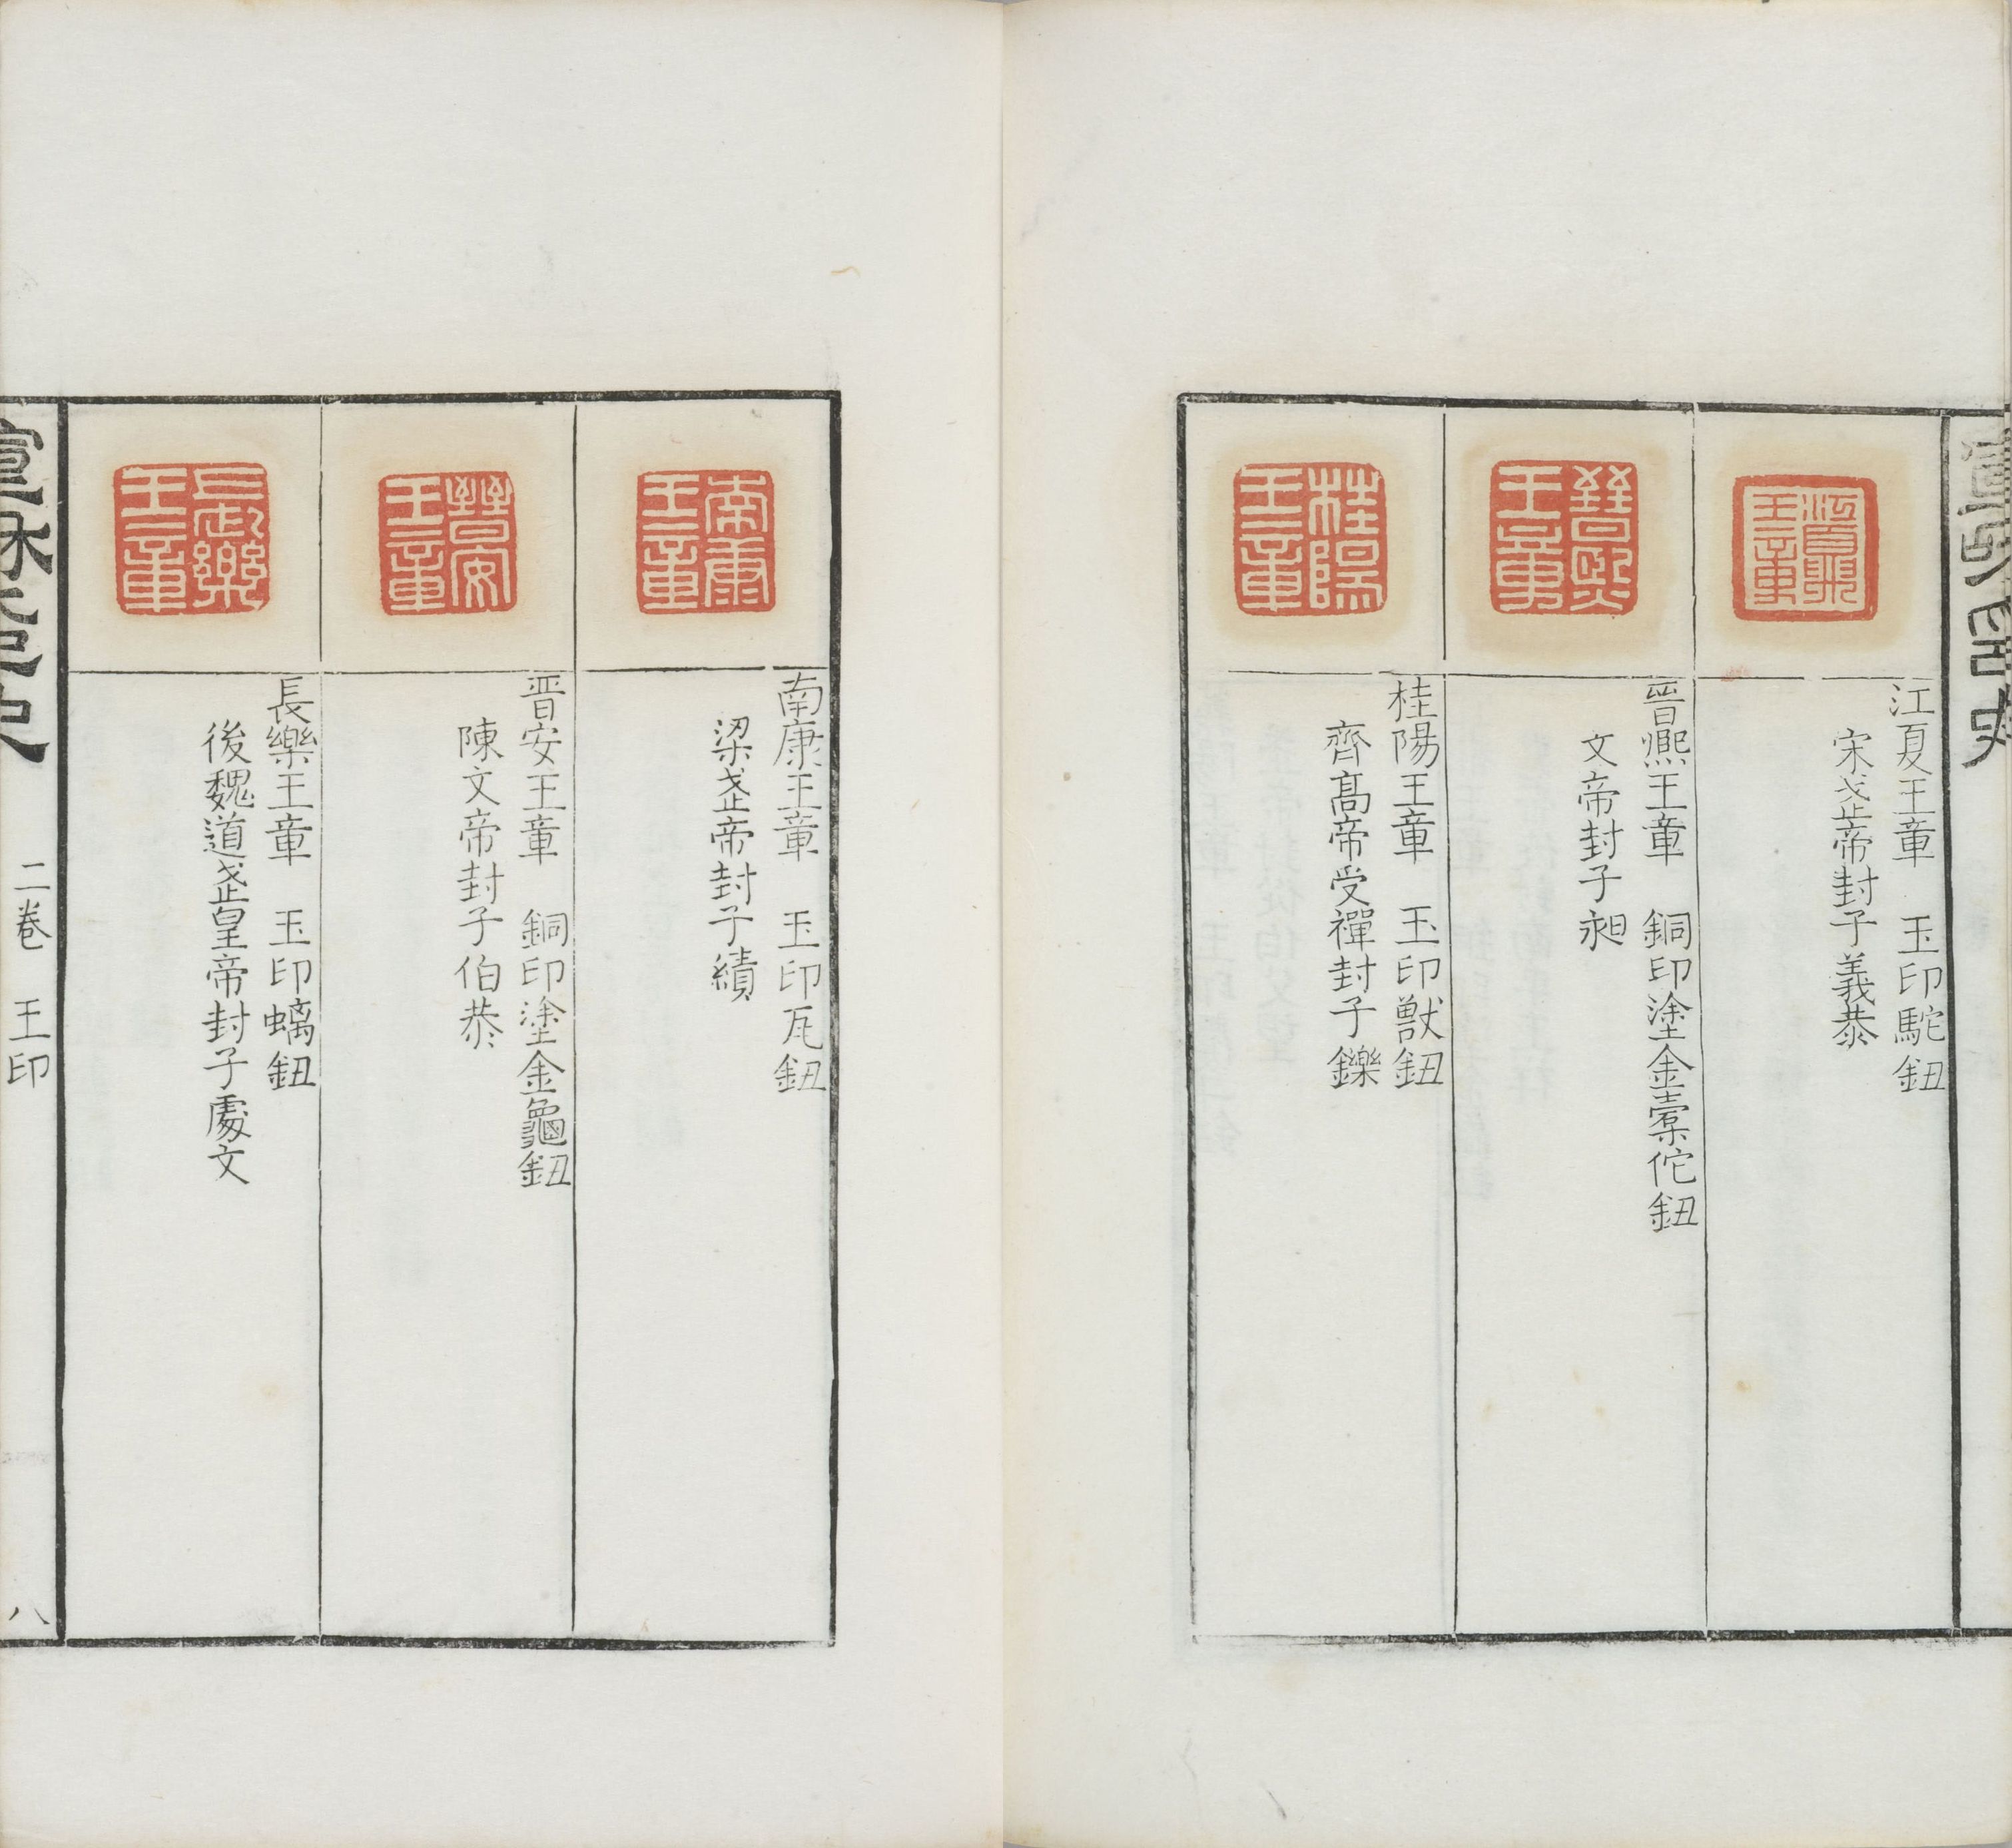 江夏王章
江夏王章　玉印駝鈕
宋武帝封子義恭
晉熙王章
晉熙王章　銅印塗金橐佗鈕
文帝封子昶
桂陽王章
桂陽王章　玉印獸鈕
齊高帝受禪封子鑠
南康王章
南康王章　玉印瓦鈕
梁武帝封子績
晉安王章
晉安王章　銅印塗金龜鈕
陳文帝封子伯恭
長樂王章
長樂王章　玉印螭鈕
後魏道武皇帝封子處文
二卷　王印
八